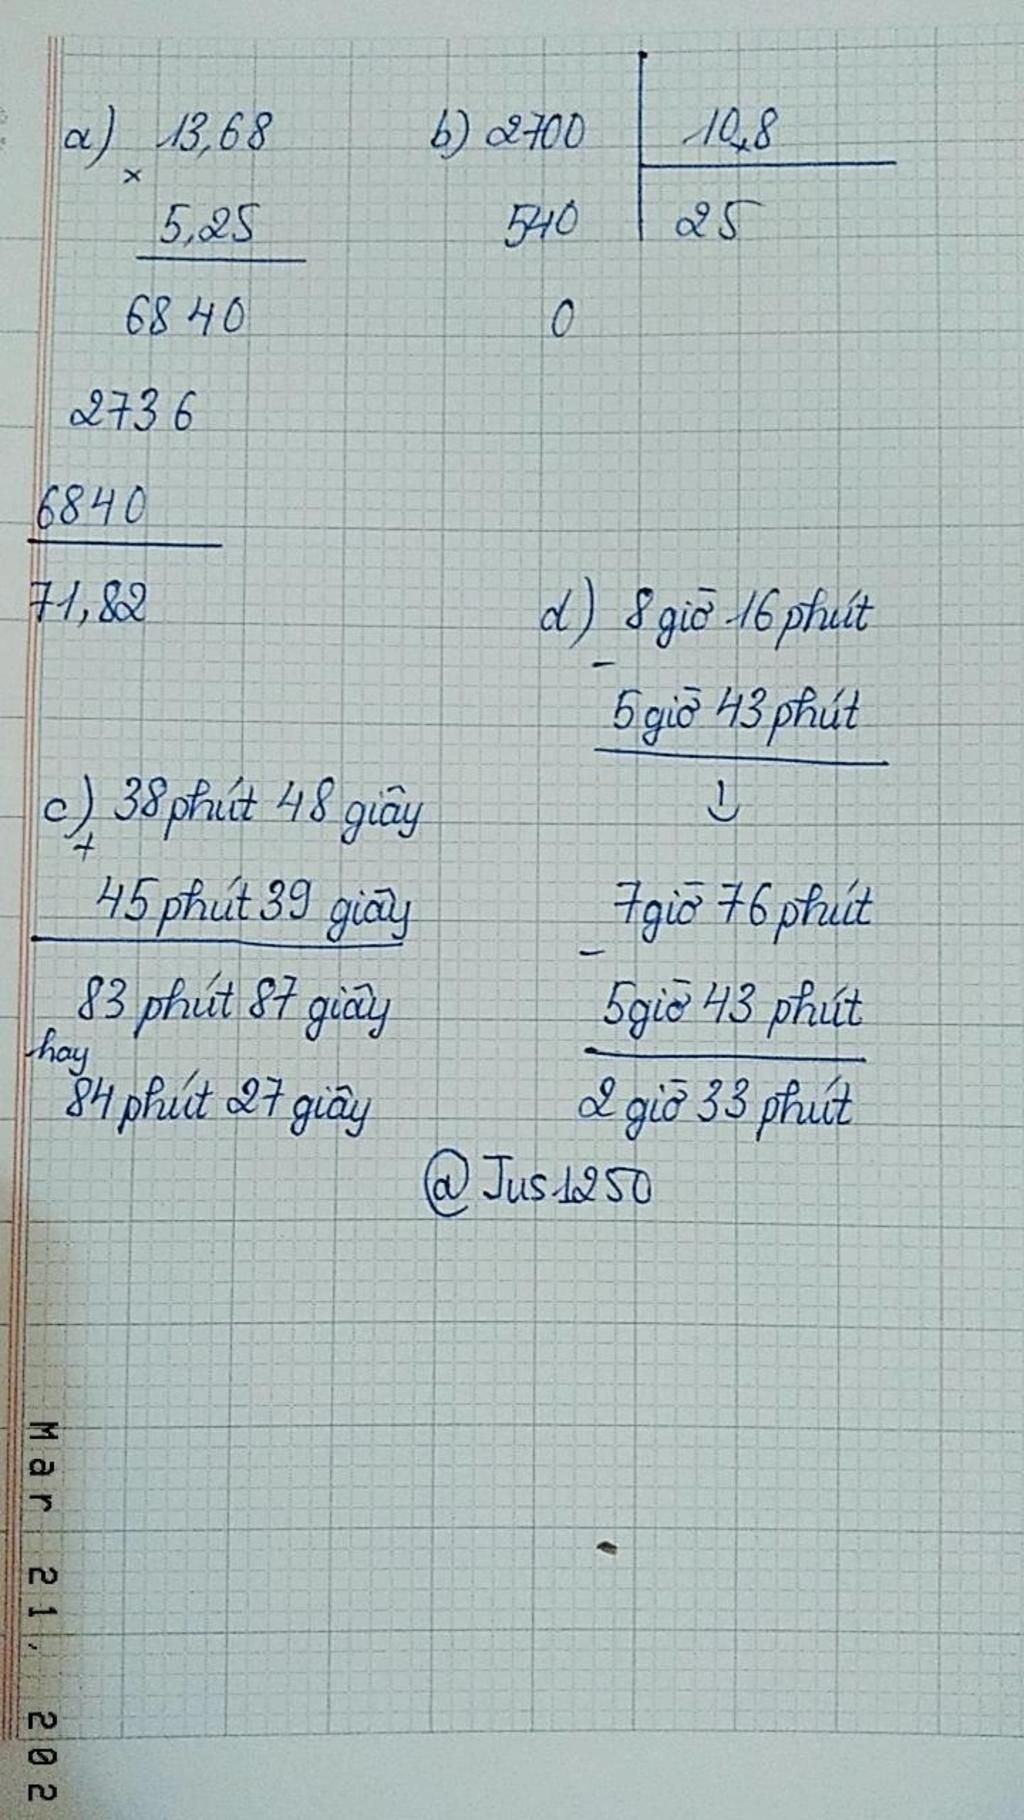 a) 13,68
×
5,25
6840
2736
6840
71,82
b) 2700 10,8
540 25
0
c) 38 phút 48 giây
+
45 phút 39 giây
83 phút 87 giây
hay
84 phút 27 giây
d) 8 giờ 16 phút
-
5 giờ 43 phút
↓
7 giờ 76 phút
-
5 giờ 43 phút
2 giờ 33 phút
@Jus1250
Mar 21, 202